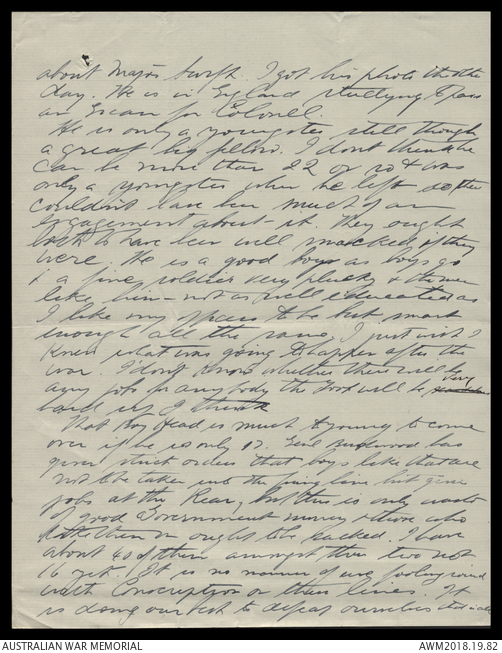 about Major Swift. I got his photo the other
day. He is in England studying to pass
an Exam for Colonel.
He is only a youngster still though
a great big fellow. I dont think he
can be more than 22 or so & was
only a youngster when he left so there
couldn't have been much of an
engagement about it. They ought
both to have been well smacked if they
were. He is a good boy as boys go
& a fine soldier very plucky & the men
like him - not as well educated as
I like my officers to be but smart
enough all the same. I just wish I
knew what was going to happen after the
war. I don't know whether there will be
any jobs for anybody the Govt will be very
hard up I think
That Roy Head is much too young to come
over if he is only 17. Genl Birdwood has
given strict orders that boys like that are
not to be taken into the firing line but given
jobs at the Rear, but this is only waste
of good Government money & those who
take them on ought to be sacked. I have
about 40 of them amongst them two not
16 yet. It is no manner of use fooling round
with Conscription on these lines. It
is doing our best to defeat ourselves
AUSTRALIAN WAR MEMORIAL
AWM2018.19.82